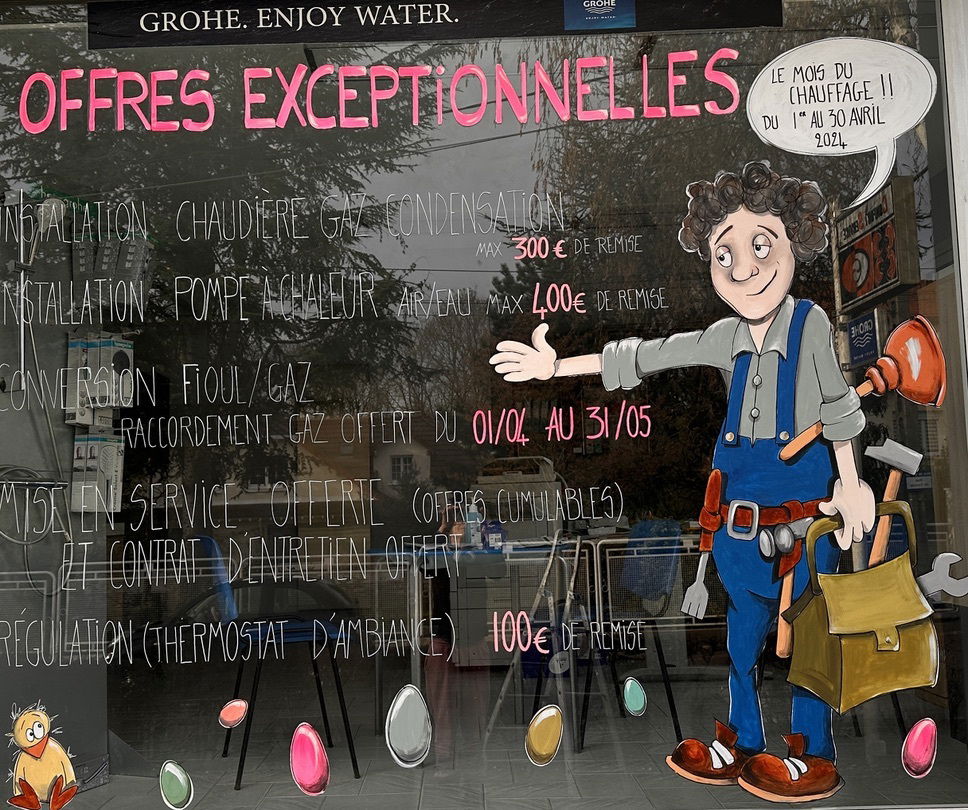 GROHE. ENJOY WATER.
GROHE
ENJOY WATER
OFFRES EXCEPTIONNELLES
LE MOIS DU
CHAUFFAGE !!
DU 1er AU 30 AVRIL
2024
INSTALLATION CHAUDIÈRE GAZ CONDENSATION
MAX 300 € DE REMISE
INSTALLATION POMPE À CHALEUR AIR/EAU MAX 400€ DE REMISE
CONVERSION FIOUL/GAZ
RACCORDEMENT GAZ OFFERT DU 01/04 AU 31/05
MISE EN SERVICE OFFERTE (OFFRES CUMULABLES)
ET CONTRAT D'ENTRETIEN OFFERT
RÉGULATION (THERMOSTAT D'AMBIANCE) 100€ DE REMISE
GROHE